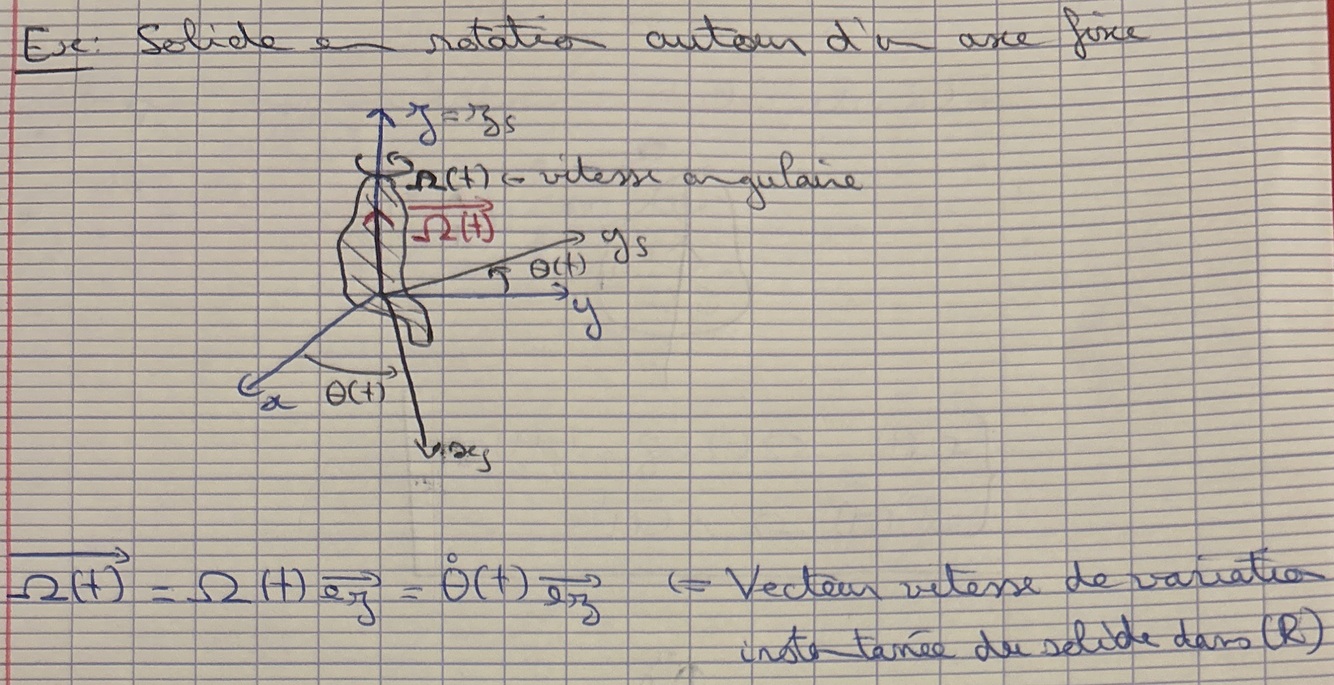 Ex: Solide en rotation autour d'un axe fixe
z = zs
Ω(t) ← vitesse angulaire
Ω(t)
ys
θ(t)
y
x
θ(t)
xs
Ω(t) = Ω(t) ez = θ̇(t) ez ⇐ Vecteur vitesse de variation
instantanée du solide dans (R)